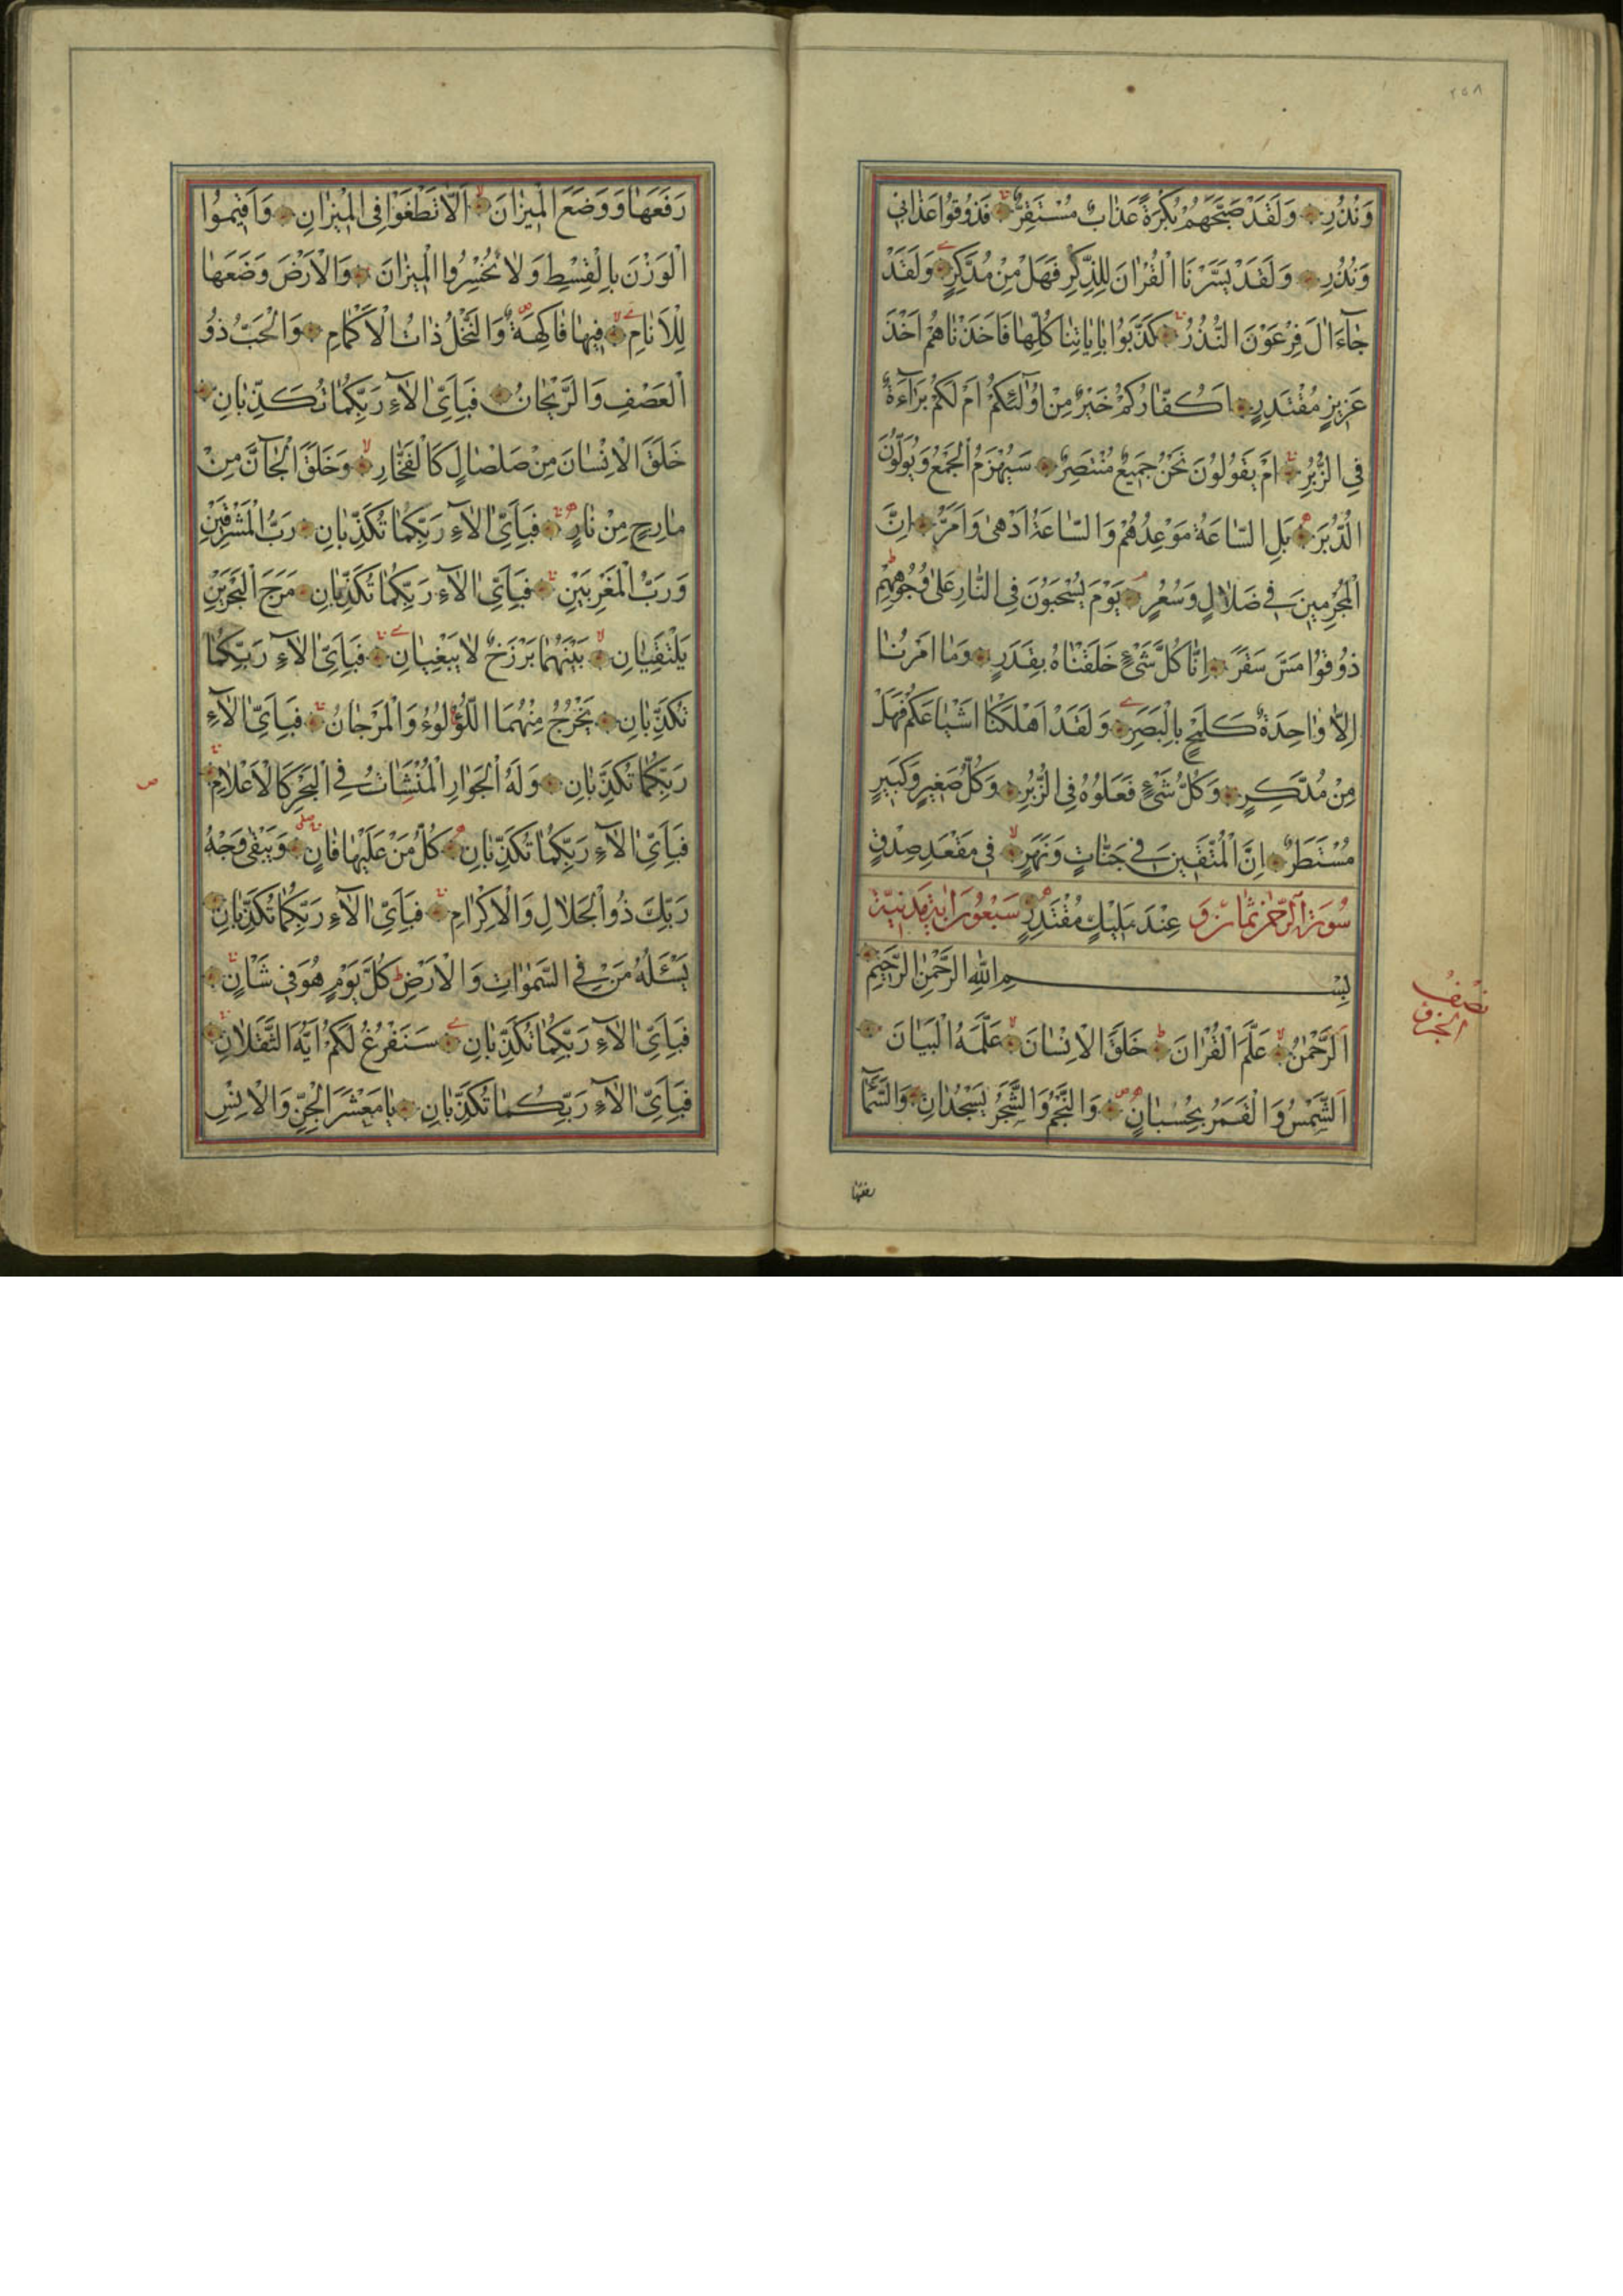 ٢٥٨
وَنُذُرِ وَلَقَدْ صَبَّحَهُمْ بُكْرَةً عَذَابٌ مُسْتَقِرٌّ فَذُوقُوا عَذَابِي
وَنُذُرِ وَلَقَدْ يَسَّرْنَا الْقُرْاٰنَ لِلذِّكْرِ فَهَلْ مِنْ مُدَّكِرٍ وَلَقَدْ
جَآءَ اٰلَ فِرْعَوْنَ النُّذُرُ كَذَّبُوا بِاٰيَاتِنَا كُلِّهَا فَاَخَذْنَاهُمْ اَخْذَ
عَزِيزٍ مُقْتَدِرٍ اَكُفَّارُكُمْ خَيْرٌ مِنْ اُولٰٓئِكُمْ اَمْ لَكُمْ بَرَآءَةٌ
فِي الزُّبُرِ اَمْ يَقُولُونَ نَحْنُ جَمِيعٌ مُنْتَصِرٌ سَيُهْزَمُ الْجَمْعُ وَيُوَلُّونَ
الدُّبُرَ بَلِ السَّاعَةُ مَوْعِدُهُمْ وَالسَّاعَةُ اَدْهٰى وَاَمَرُّ اِنَّ
الْمُجْرِمِينَ فِي ضَلَالٍ وَسُعُرٍ يَوْمَ يُسْحَبُونَ فِي النَّارِ عَلٰى وُجُوهِهِمْ
ذُوقُوا مَسَّ سَقَرَ اِنَّا كُلَّ شَيْءٍ خَلَقْنَاهُ بِقَدَرٍ وَمَا اَمْرُنَا
اِلَّا وَاحِدَةٌ كَلَمْحٍ بِالْبَصَرِ وَلَقَدْ اَهْلَكْنَا اَشْيَاعَكُمْ فَهَلْ
مِنْ مُدَّكِرٍ وَكُلُّ شَيْءٍ فَعَلُوهُ فِي الزُّبُرِ وَكُلُّ صَغِيرٍ وَكَبِيرٍ
مُسْتَطَرٌ اِنَّ الْمُتَّقِينَ فِي جَنَّاتٍ وَنَهَرٍ فِي مَقْعَدِ صِدْقٍ
سُورَةُ الرَّحْمٰنِ ثَمَانٍ وَ عِنْدَ مَلِيكٍ مُقْتَدِرٍ سَبْعُونَ اٰيَةً مَدَنِيَّة
بِسْمِ اللهِ الرَّحْمٰنِ الرَّحِيمِ
اَلرَّحْمٰنُ عَلَّمَ الْقُرْاٰنَ خَلَقَ الْاِنْسَانَ عَلَّمَهُ الْبَيَانَ
اَلشَّمْسُ وَالْقَمَرُ بِحُسْبَانٍ وَالنَّجْمُ وَالشَّجَرُ يَسْجُدَانِ وَالسَّمَآءَ
نصف
الجزو
رفعها
رَفَعَهَا وَوَضَعَ الْمِيزَانَ اَلَّا تَطْغَوْا فِي الْمِيزَانِ وَاَقِيمُوا
الْوَزْنَ بِالْقِسْطِ وَلَا تُخْسِرُوا الْمِيزَانَ وَالْاَرْضَ وَضَعَهَا
لِلْاَنَامِ فِيهَا فَاكِهَةٌ وَالنَّخْلُ ذَاتُ الْاَكْمَامِ وَالْحَبُّ ذُو
الْعَصْفِ وَالرَّيْحَانُ فَبِاَيِّ اٰلَآءِ رَبِّكُمَا تُكَذِّبَانِ
خَلَقَ الْاِنْسَانَ مِنْ صَلْصَالٍ كَالْفَخَّارِ وَخَلَقَ الْجَآنَّ مِنْ
مَارِجٍ مِنْ نَارٍ فَبِاَيِّ اٰلَآءِ رَبِّكُمَا تُكَذِّبَانِ رَبُّ الْمَشْرِقَيْنِ
وَرَبُّ الْمَغْرِبَيْنِ فَبِاَيِّ اٰلَآءِ رَبِّكُمَا تُكَذِّبَانِ مَرَجَ الْبَحْرَيْنِ
يَلْتَقِيَانِ بَيْنَهُمَا بَرْزَخٌ لَا يَبْغِيَانِ فَبِاَيِّ اٰلَآءِ رَبِّكُمَا
تُكَذِّبَانِ يَخْرُجُ مِنْهُمَا اللُّؤْلُؤُ وَالْمَرْجَانُ فَبِاَيِّ اٰلَآءِ
رَبِّكُمَا تُكَذِّبَانِ وَلَهُ الْجَوَارِ الْمُنْشَاٰتُ فِي الْبَحْرِ كَالْاَعْلَامِ
فَبِاَيِّ اٰلَآءِ رَبِّكُمَا تُكَذِّبَانِ كُلُّ مَنْ عَلَيْهَا فَانٍ وَيَبْقٰى وَجْهُ
رَبِّكَ ذُو الْجَلَالِ وَالْاِكْرَامِ فَبِاَيِّ اٰلَآءِ رَبِّكُمَا تُكَذِّبَانِ
يَسْـَٔلُهُ مَنْ فِي السَّمٰوَاتِ وَالْاَرْضِ كُلَّ يَوْمٍ هُوَ فِي شَاْنٍ
فَبِاَيِّ اٰلَآءِ رَبِّكُمَا تُكَذِّبَانِ سَنَفْرُغُ لَكُمْ اَيُّهَ الثَّقَلَانِ
فَبِاَيِّ اٰلَآءِ رَبِّكُمَا تُكَذِّبَانِ يَا مَعْشَرَ الْجِنِّ وَالْاِنْسِ
ص